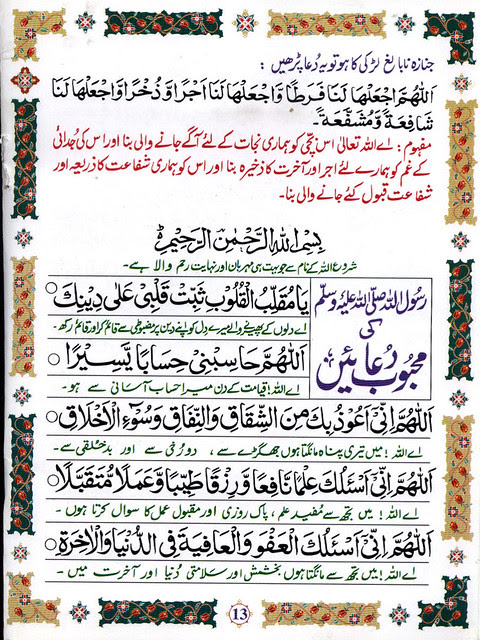 جنازہ نابالغ لڑکی کا ہو تو یہ دُعا پڑھیں :
اَللّٰهُمَّ اجْعَلْهَا لَنَا فَرَطًا وَّاجْعَلْهَا لَنَا اَجْرًا وَّذُخْرًا وَّاجْعَلْهَا لَنَا
شَافِعَةً وَّمُشَفَّعَةً۔
مفہوم : اے اللہ تعالیٰ اس بچّی کو ہماری نجات کے لئے آگے جانے والی بنا اور اس کی جُدائی
کے غم کو ہمارے لئے اجر اور آخرت کا ذخیرہ بنا اور اس کو ہماری شفاعت کا ذریعہ اور
شفاعت قبول کئے جانے والی بنا۔
بِسْمِ اللهِ الرَّحْمٰنِ الرَّحِيْمِ
شروع اللہ کے نام سے جو بہت ہی مہربان اور نہایت رحم والا ہے۔
رسول اللہ صلّی اللہ علیہ وسلّم
کی
محبوب دُعائیں
يَا مُقَلِّبَ الْقُلُوْبِ ثَبِّتْ قَلْبِيْ عَلٰى دِيْنِكَ
اے دلوں کے پھیرنے والے میرے دل کو اپنے دین پر مضبوطی سے قائم کر اور قائم رکھ۔
اَللّٰهُمَّ حَاسِبْنِيْ حِسَابًا يَّسِيْرًا
اے اللہ! قیامت کے دن میرا حساب آسانی سے ہو۔
اَللّٰهُمَّ اِنِّيْ اَعُوْذُ بِكَ مِنَ الشِّقَاقِ وَالنِّفَاقِ وَسُوْٓءِ الْاَخْلَاقِ
اے اللہ ! میں تیری پناہ مانگتا ہوں جھگڑے سے ، دو رُخی سے اور بدخلقی سے۔
اَللّٰهُمَّ اِنِّيْ اَسْئَلُكَ عِلْمًا نَّافِعًا وَّرِزْقًا طَيِّبًا وَّعَمَلًا مُّتَقَبَّلًا
اے اللہ! میں تجھ سے مُفید علم ، پاک روزی اور مقبول عمل کا سوال کرتا ہوں۔
اَللّٰهُمَّ اِنِّيْ اَسْئَلُكَ الْعَفْوَ وَالْعَافِيَةَ فِي الدُّنْيَا وَالْاٰخِرَةِ
اے اللہ! میں تجھ سے مانگتا ہوں بخشش اور سلامتی دُنیا اور آخرت میں ۔
13